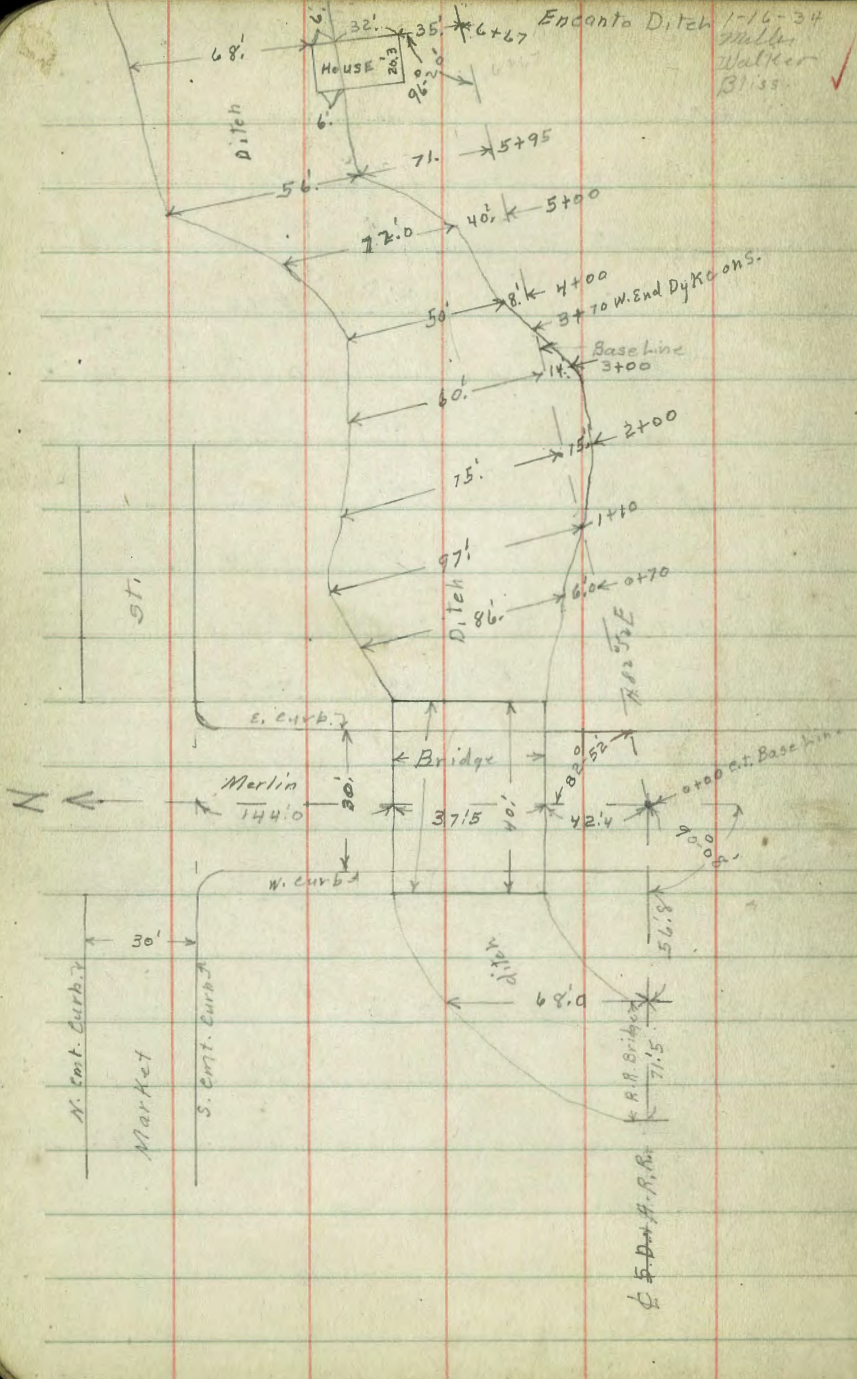 Encanto Ditch 1-16-34
Mills
Walker
Bliss
6'.
32'.
35'.
6+67
68'.
HOUSE
20.3
96°-20'
6'.
Ditch
71.
5+95
56'.
40'.
5+00
72'.0
8'.
4+00
50'
3+70 W. End Dyke on S.
Base Line
14'.
3+00
60'.
15'.
2+00
75'.
1+10
97'.
6'.0
0+70
86'.
Ditch
St.
N.82°52'E
E. Curb.
Bridge
82°-52'
0+00 c.t. Base Line
N
Merlin
144'.0
30'.
37'.5
40'.
42'.4
90°00'
W. Curb
56'.8
30'
ditch
68'.0
N. Cmt. Curb.
Market
S. Cmt. Curb
R.R. Bridge
71'.5
₵ S.D. & A. R.R.